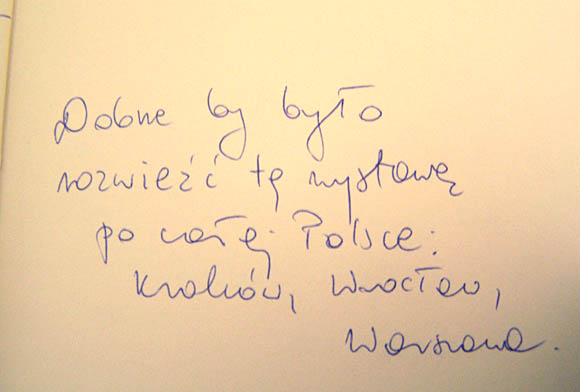 Dobrze by było
rozwieźć tę wystawę
po całej Polsce:
Kraków, Wrocław,
Warszawa.